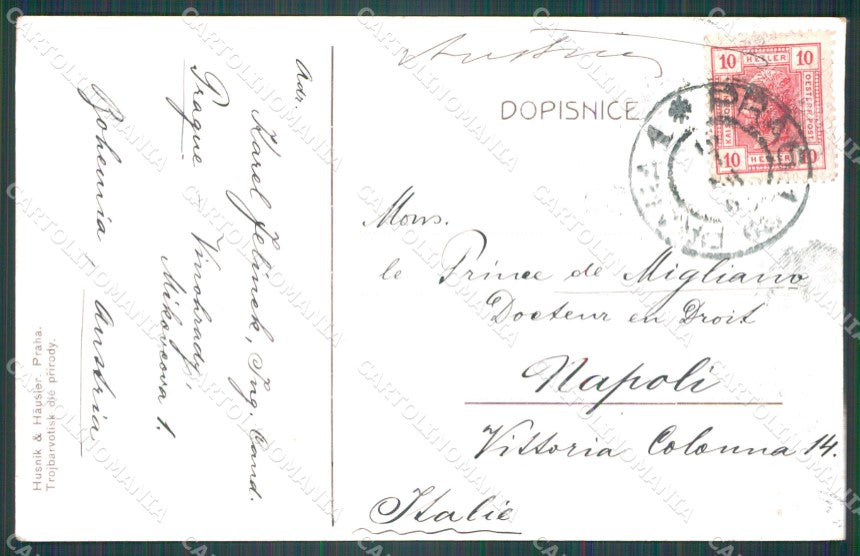 Austria
DOPISNICE
10 HELLER 10
10 HELLER 10
Adr.
Karel Jelínek, Ing. Cand.
Prague - Vinohrady,
Mikovcova 1.
Bohemia - Austria
Husnik & Häusler, Praha.
Trojbarvotisk dle přírody.
Mons.
le Prince de Migliano
Docteur en Droit
Napoli
Vittoria Colonna 14.
Italie
CARTOLINOMANIA